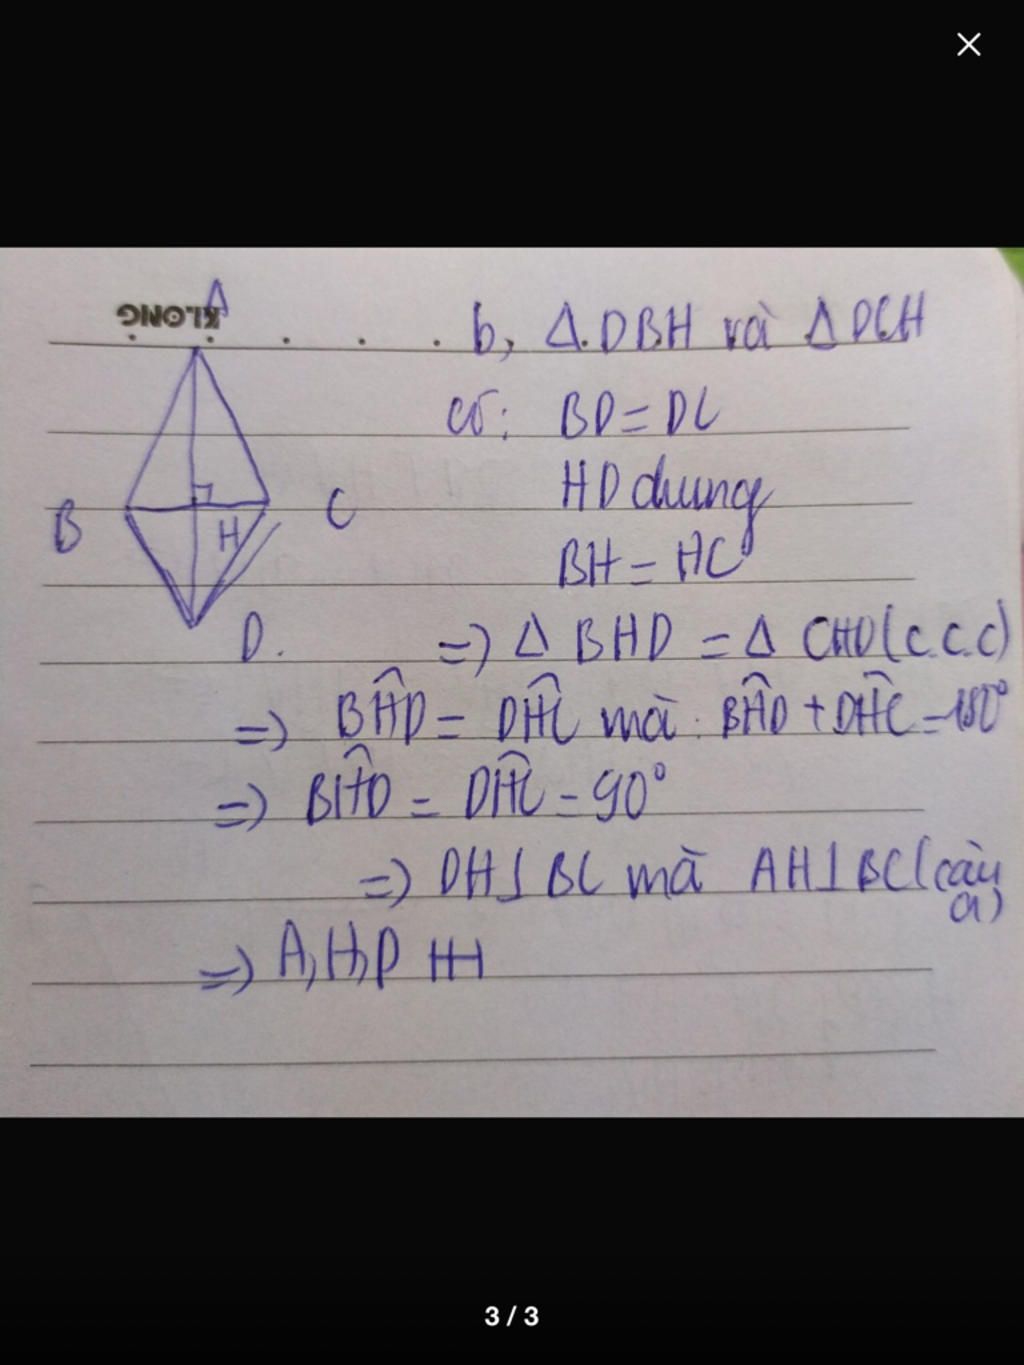 KLONG
A
b, Δ.DBH và Δ DCH
có: BD = DC
HD chung
B
H
C
BH = HC
D.
=> Δ BHD = Δ CHD (c.c.c)
=> BĤD = DĤC mà: BĤD + DĤC = 180°
=> BĤD = DĤC = 90°
=> DH⊥BC mà AH⊥BC (câu a)
=> A, H, D
3 / 3